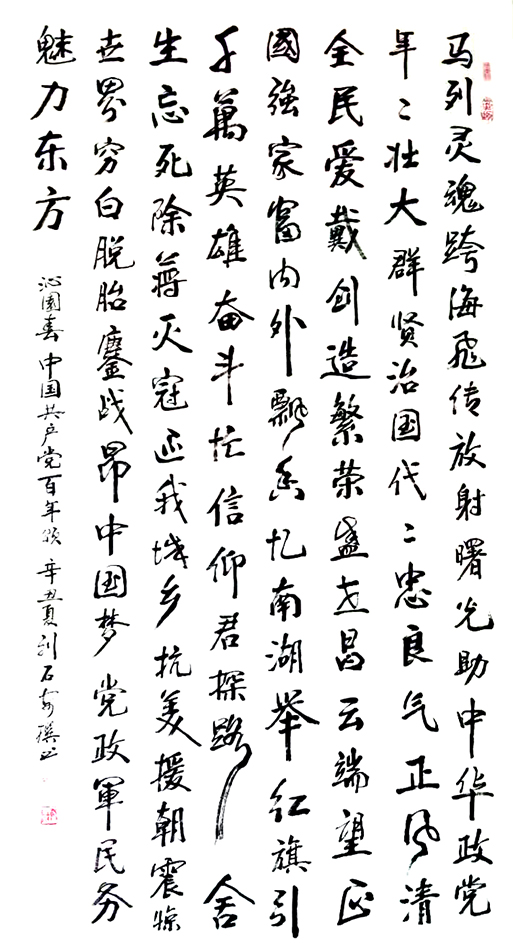 马列灵魂跨海飞传放射曙光助中华政党
年〻壮大群贤治国代〻忠良气正风清
全民爱戴创造繁荣盛世昌云端望正
國強家富内外飘香忆南湖举红旗引
千萬英雄奋斗忙信仰君探路舍
生忘死除蒋灭寇还我城乡抗美援朝震惊
世界穷白脱胎鏖战昂中国梦党政軍民务
魅力东方
沁園春中国共产党百年颂辛丑夏刘石安撰书